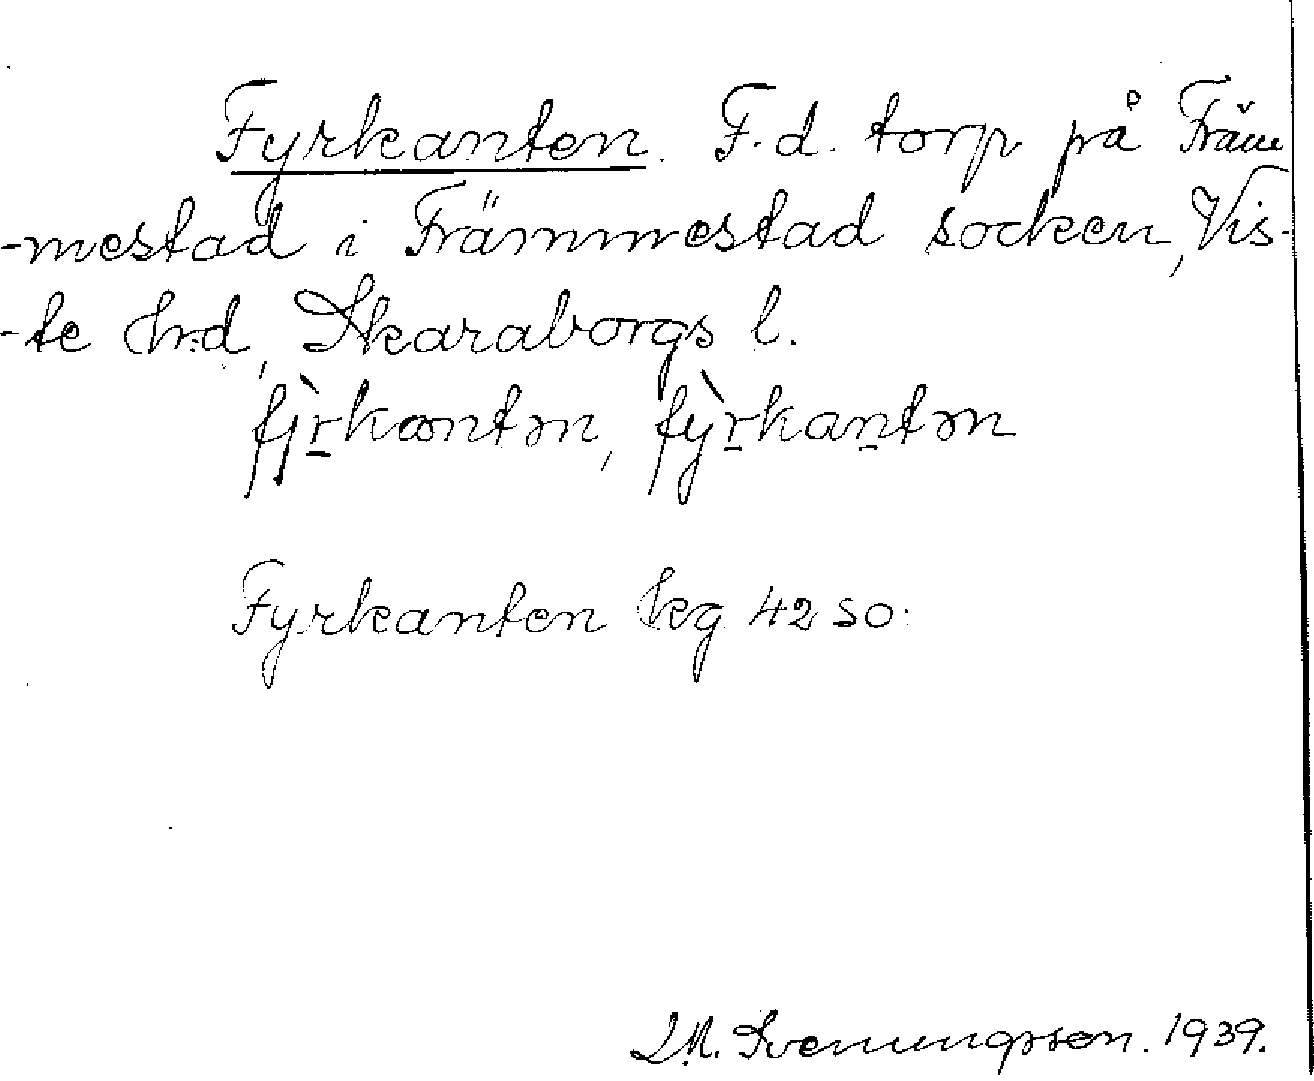 Fyrkanten. F.d. torp på Främ
-mestad i Främmestad socken, Vis-
-te hrd, Skaraborgs l.
fỳrkantn, fỳrkantn
Fyrkanten Ekg 42 SO.
L.M. Svenungsson. 1939.